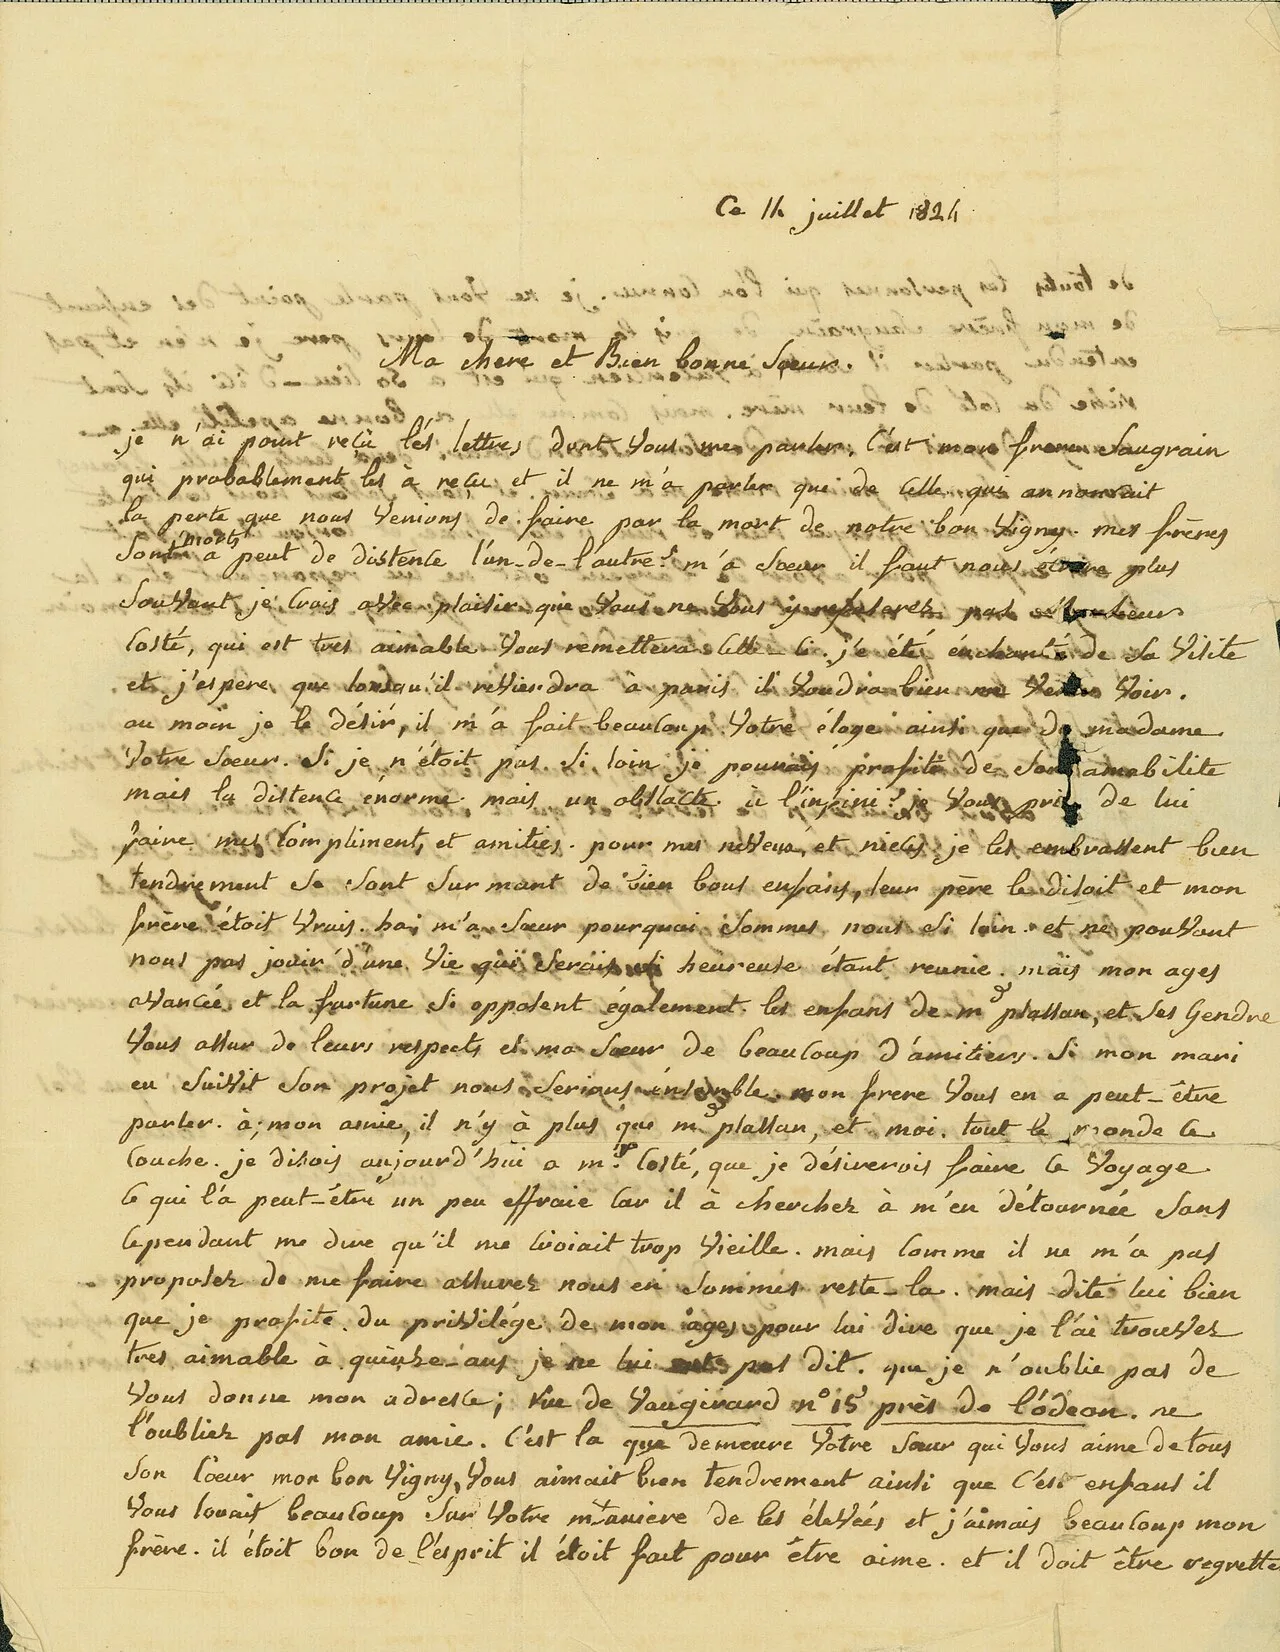 Ce 14 juillet 1824
Ma chere et Bien bonne Sœur.
je n'ai point reçu lés lettres dont Vous me parler, C'est mon frere Saugrain
qui probablement les à reçu et il ne m'a parler que de Celle qui annoncait
la perte que nous Venions de faire par la mort de notre bon Vigny. mes frères
Sont morts a peut de distence l'un-de-l'autre. m'a Sœur il faut nous écrire plus
SouVant, je Crois avec plaisir que Vous ne Vous y refuserez pas
Costé, qui est tres aimable Vous remettera Celle-Ci. j'é été énchanté de Sa Visite
et j'espere que lorsqu'il reViendra à paris il Voudra bien me Voir.
au moin je le désir, il m'a fait beauCoup Votre éloge ainsi que de madame
Votre Sœur. Si je n'étoit pas Si loin je pourais profité de Son amabilite
mais la distence énorme mais un obstacle à l'infini. je Vous prie de lui
faire mes Compliment, et amitiés. pour mes neVeux, et nieces je les embrassent bien
tendrement Se Sont Surmant de bien bons enfans, leur père le disoit et mon
frère étoit Vrais. ha, m'a Sœur pourquoi Sommes nous Si loin. et ne pouVant
nous pas jouir d'une Vie qui Serais Si heureuse étant reunie. mais mon ages
aVancée et la fortune Si opposent également. les enfans de md plassan, et Ses Gendre
Vous assur de leurs respects et ma Sœur de beauCoup d'amitiers. Si mon mari
eu SuiVit Son projet nous Serions énsemble. mon frere Vous en a peut-être
parler. à, mon amie, il n'y à plus que md plassan, et moi. tout le monde Ce
Couche. je disois aujord'hui a mr Costé, que je désirerois faire Ce Voyage
Ce qui l'a peut-être un peu effraie Car il à Cherchez à m'en détournée Sans
Cependant me dire qu'il me Croiait trop Vieille. mais Comme il ne m'a pas
proposez de me faire assurez nous en Sommes reste-la. mais dite lui bien
que je profite du priVilége de mon âges pour lui dire que je l'ai trouVez
tres aimable à quinze-ans je ne lui pas dit. que je n'oublie pas de
Vous donne mon adresse; rue de Vaugirard n° 15 près de l'ódeon. ne
l'oubliez pas mon amie. C'est la que demeure Votre Sœur qui Vous aime de tous
Son Cœur mon bon Vigny, Vous aimait bien tendrement ainsi que C'est enfans il
Vous louait beauCoup Sur Votre maniere de les éleVées et j'aimais beauCoup mon
frère. il étoit bon de l'ésprit il étoit fait pour être aime. et il doit être regrette